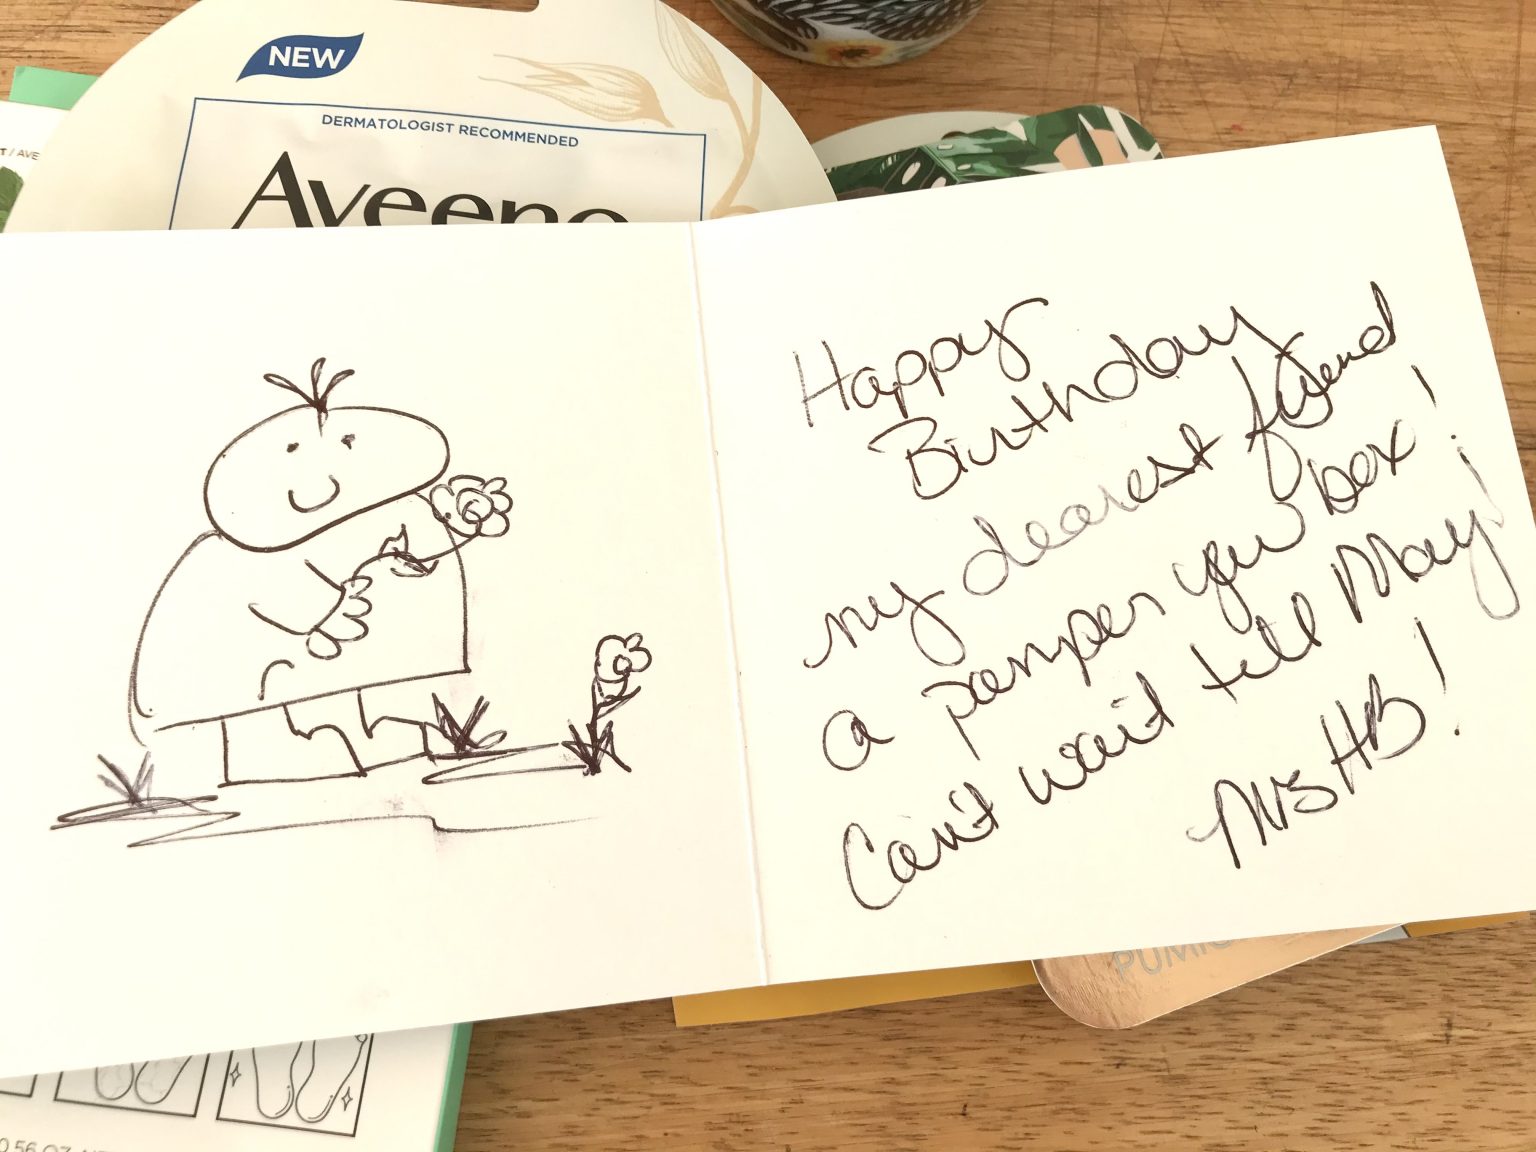 NEW
DERMATOLOGIST RECOMMENDED
Aveeno
T / AVE
Happy
Birthday
my dearest friend
a pamper you box!
Can't wait till May!
HB!
PUMIC
0.56 OZ